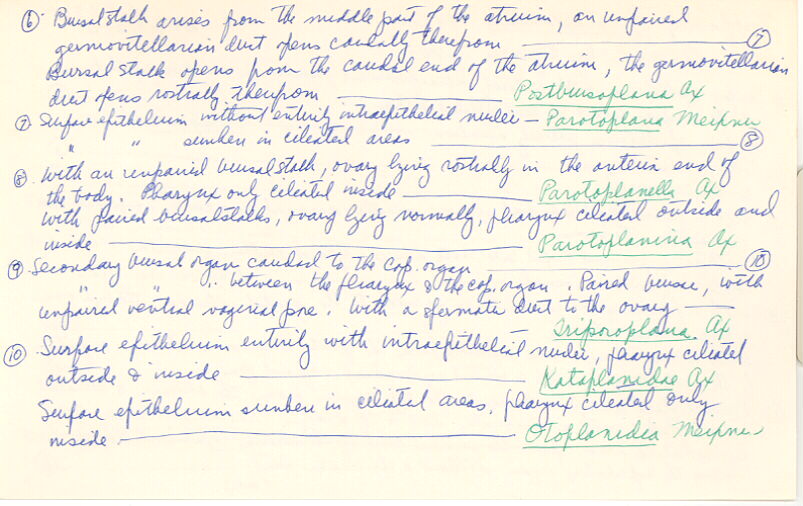 ⑥ Bursalstalk arises from the middle part of the atrium, an unpaired
germovitellarian duct opens caudally therefrom ⑦
Bursal stalk opens from the caudal end of the atrium, the germovitellarian
duct opens rostrally therefrom Postbursoplana Ax
⑦ Surface epithelium without entirely intraepithelial nuclei – Parotoplana Meixner
" " sunken in ciliated areas ⑧
⑧ With an unpaired bursalstalk, ovary lying rostrally in the anterior end of
the body. Pharynx only ciliated inside Parotoplanella Ax
With paired bursalstalks, ovary lying normally, pharynx ciliated outside and
inside Parotoplanina Ax
⑨ Secondary bursal organ caudad to the cop. organ ⑩
" " " between the pharynx & the cop. organ. Paired bursae, with
unpaired ventral vaginal pore. With a spermatic duct to the ovary
Triporoplana Ax
⑩ Surface epithelium entirely with intraepithelial nuclei, pharynx ciliated
outside & inside Kataplanidae Ax
Surface epithelium sunken in ciliated areas, pharynx ciliated only
inside Otoplanidia Meixner